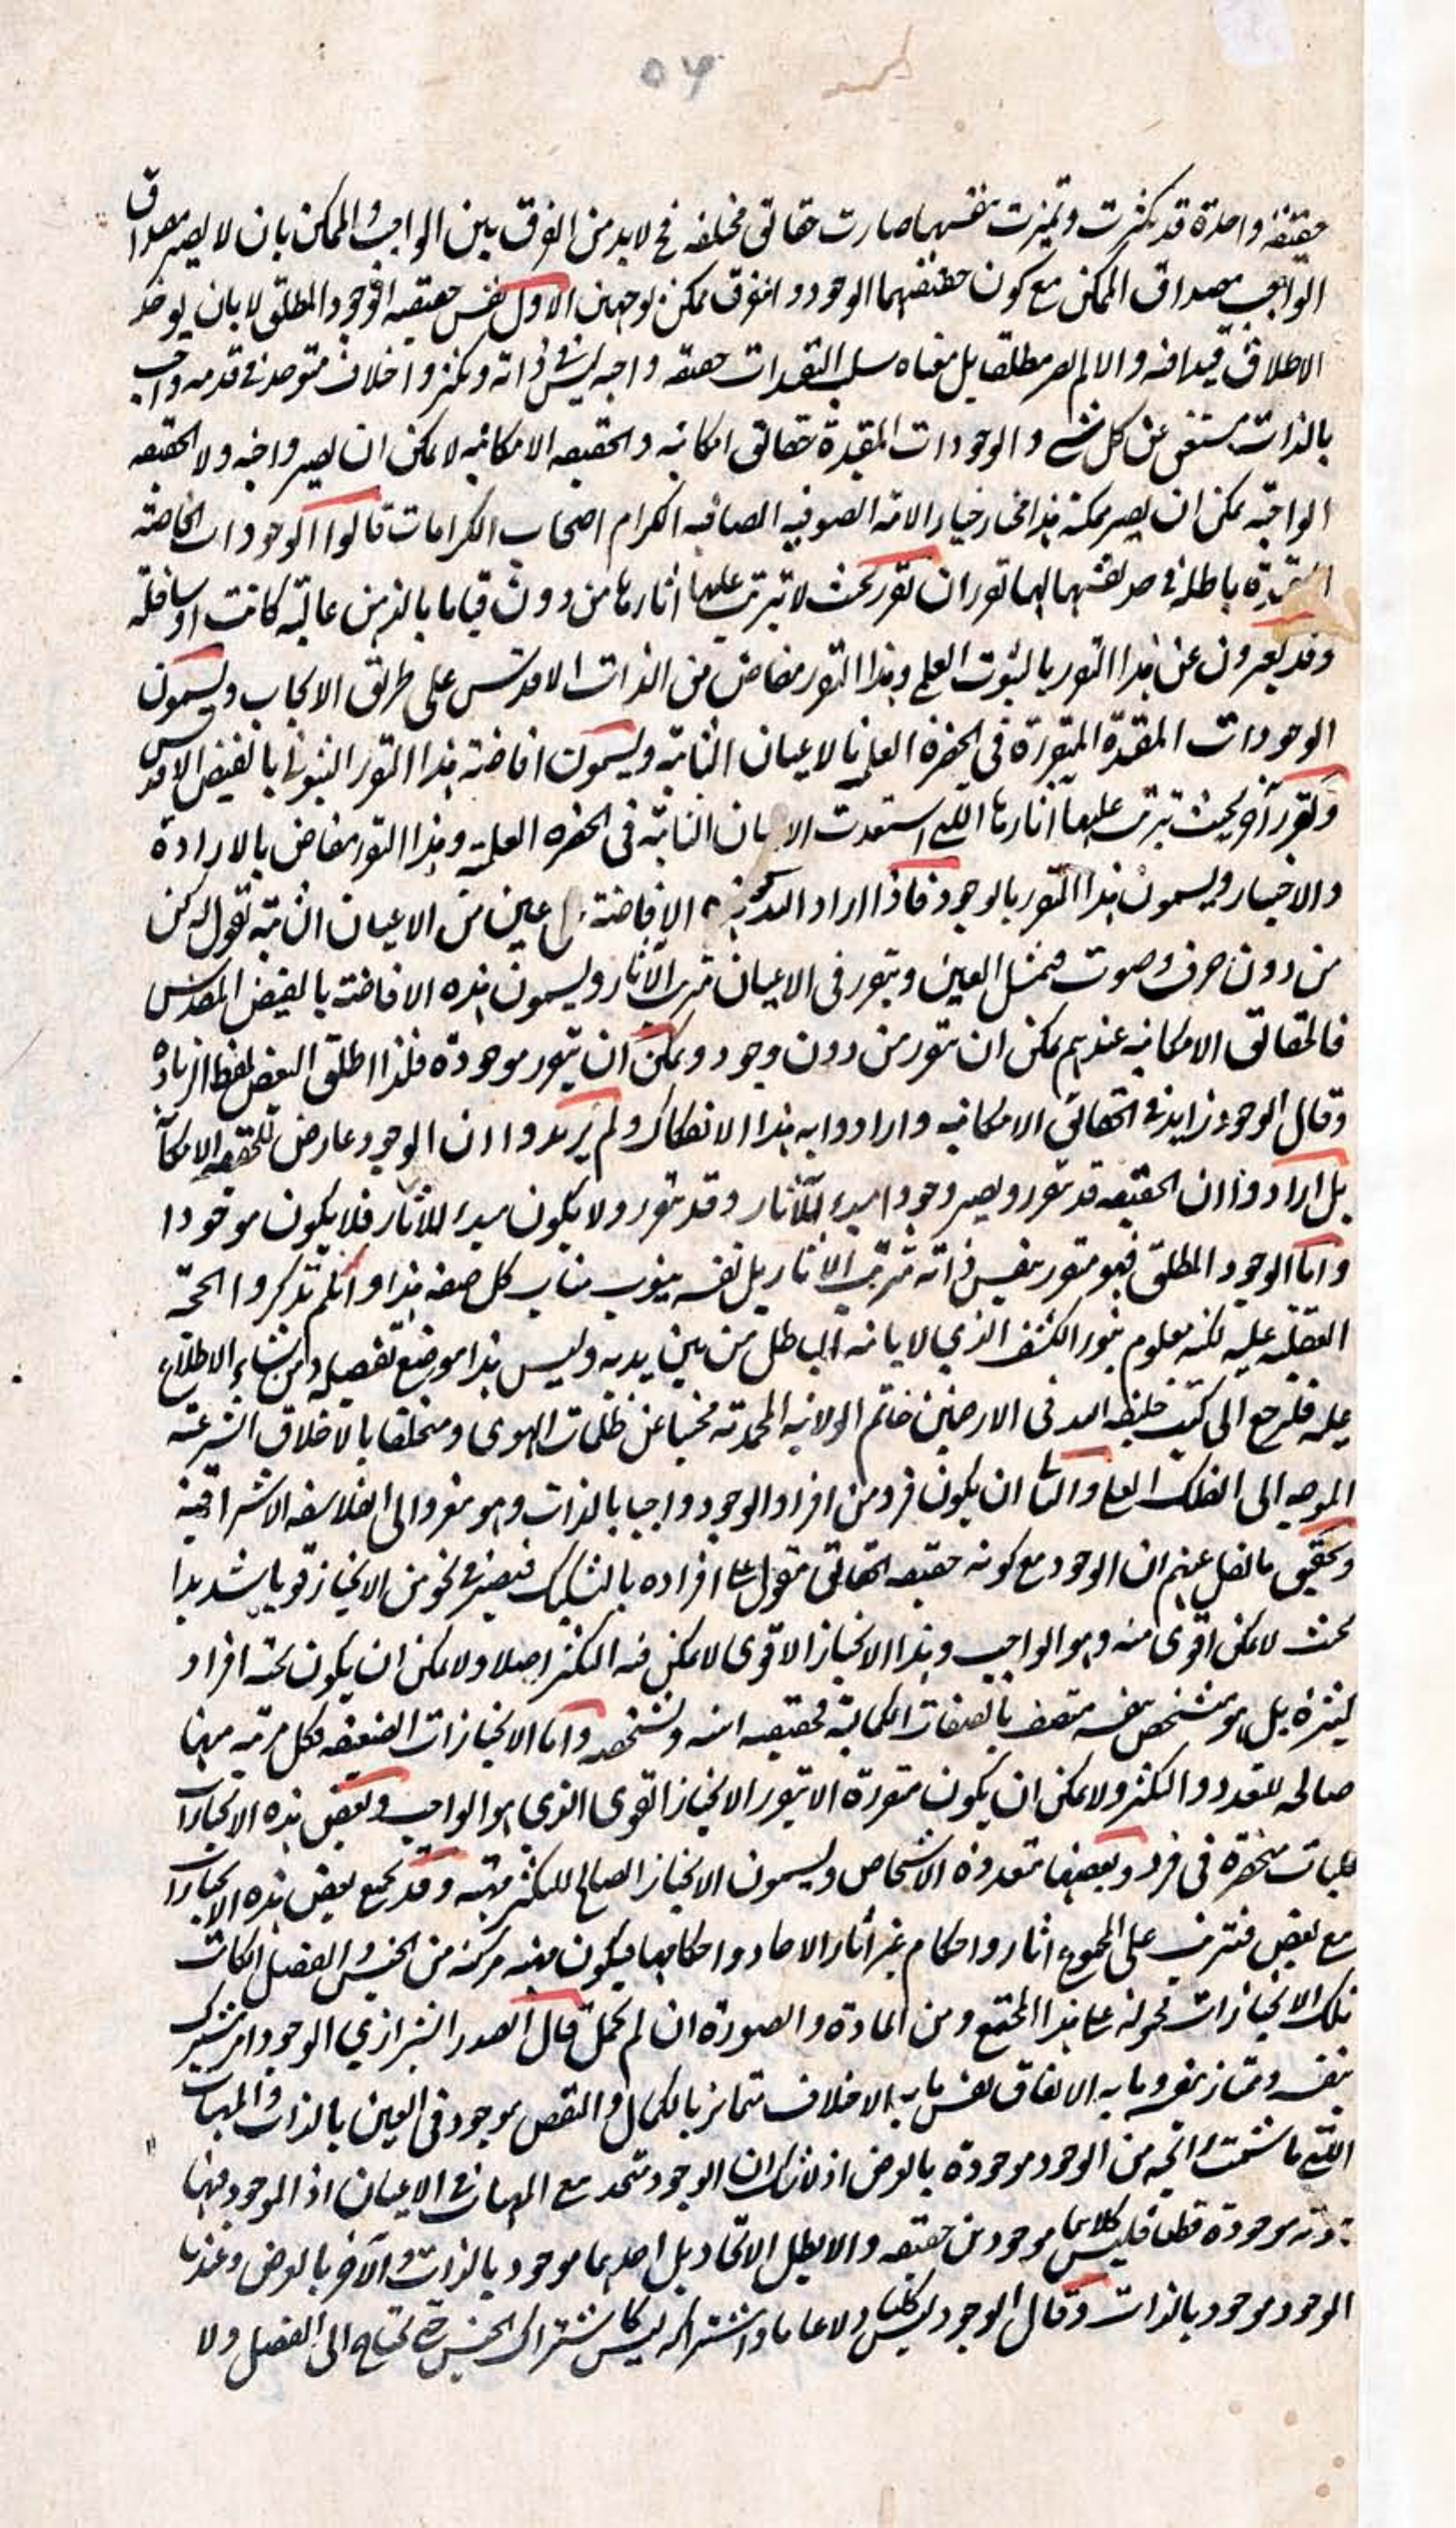 ٥٦
حقيقة واحدة قد تكثرت وتميزت بنفسها صارت حقائق مختلفه فح لا بد من الفرق بين الواجب والممكن بان لا يصير مصداق
الواجب مصداق الممكن مع كون حقيقتهما الوجود والفرق ممكن بوجهين الاول نفس حقيقه الوجود المطلق لا بان يوخذ
الاطلاق قيدا فيه والا لم يصر مطلقا بل معناه سلب التقيدات حقيقه واجبه ليس في ذاته وتكثر واختلاف متوحد في قدمه واجب
بالذات مستغن عن كل شي والوجودات المقيدة حقائق امكانيه والحقيقه الامكانيه لا يمكن ان يصير واجبه ولا الحقيقه
الواجبه يمكن ان يصير ممكنة هذا مختار خيار الامة الصوفيه الصافيه الكرام اصحاب الكرامات قالوا الوجودات الخاصة
المقيدة باطلة في حد نفسها لها تقرران تقرر بحيث لا تترتب عليها اثارها من دون قيامها بالذهن عالية كانت او سافلة
وقد يعبرون عن هذا التقرر بالثبوت العلمي وهذا التقرر مفاض من الذات الاقدس على طريق الايجاب ويسمون
الوجودات المقيدة المتقررة في الحضرة العلمية بالاعيان الثابتة ويسمون افاضته هذا التقرر الثبوتي بالفيض الاقدس
وتقرر آخر بحيث تترتب عليها اثارها اللتي استعدت الاعيان الثابتة في الحضره العلمية وهذا التقرر مفاض بالارادة
والاختيار ويسمون هذا التقرر بالوجود فاذا اراد الله الافاضة عين من الاعيان الثابتة يقول له كن
من دون حرف وصوت فيمتثل العين ويتقرر في الاعيان مترتب الآثار ويسمون هذه الافاضة بالفيض المقدس
فالحقائق الامكانيه عندهم يمكن ان يتقرر من دون وجود ويمكن ان يتقرر موجودة فلذا اطلق البعض لفظ الزيادة
وقال الوجود زايد في الحقائق الامكانيه وارادوا به هذا الانفكاك ولم يريدوا ان الوجود عارض للحقيقه الامكانية
بل ارادوا ان الحقيقه قد تتقرر ويصير وجودا مبدء للآثار وقد يتقرر ولا يكون مبدء للاثار فلا يكون موجودا
واما الوجود المطلق فهو متقرر بنفس ذاته مترتب الاثار بل نفسه ينوب مناب كل صفه هذا وانكم تذكروا الحجة
العقليه عليه لكنه معلوم بنور الكشف الذي لا ياتيه الباطل من بين يديه وليس هذا موضع تفصيله ومن شاء الاطلاع
عليه فليرجع الى كتب خليفة الله في الارضين خاتم الولاية المحمدية مجتنبا عن ظلمات الهوى ومتخلقا بالاخلاق الشرعية
الموجه الى الفلك العلي والثاني ان يكون فرد من افراد الوجود واجبا بالذات وهو معزو الى الفلاسفه الاشراقية
وتحقيق ما نقل عنهم ان الوجود مع كونه حقيقه الحقائق مقول على افراده بالتشكيك فيصير في نحو من الانحياز قويا شديدا
بحيث لا يمكن اقوى منه وهو الواجب وهذا الانحياز الاقوى لا يمكن فيه التكثر اصلا ولا يمكن ان يكون تحته افراد
كثيرة بل هو متشخص بنفسه متصف بالصفات الكمالية فحقيقته انيته وتشخصه واما الانحيازات الضعيفه فكل مرتبه منها
صالحه للتعدد والتكثر ولا يمكن ان يكون متقررة الا بتقرر الانحياز القوى الذى هو الواجب وبعض هذه الانحيازات
كليات منحصرة في فرد وبعضها متعددة الاشخاص ويسمون الانحياز الصالح للتكثر مهية وقد يجمع بعض هذه الانحيازات
مع بعض فتترتب على المجموع اثار واحكام غير اثار الاحاد واحكامها فيكون مهيه مركبة من الجنس والفصل ان كانت
تلك الانحيازات محمولة على هذا المجتمع ومن المادة والصورة ان لم يحمل قال الصدر الشيرازي الوجود امر مشترك
بنفسه وممتاز بنفسه وما به الاتفاق نفس ما به الاختلاف متمايز بالكمال والنقص موجود في العين بالذات والمهيات
اللتي ما شمت رائحه من الوجود موجودة بالعرض اذ لا شك ان الوجود متحد مع المهيات في الاعيان اذ الموجود منها
موجودة قطعا فليس كلاهما موجودين حقيقه والا بطل الاتحاد بل احدهما موجود بالذات والآخر بالعرض وعندنا
الوجود موجود بالذات وقال الوجود ليس كليا ولا عاما واشتراكه ليس كاشتراك الجنس حتى تحتاج الى الفصل ولا